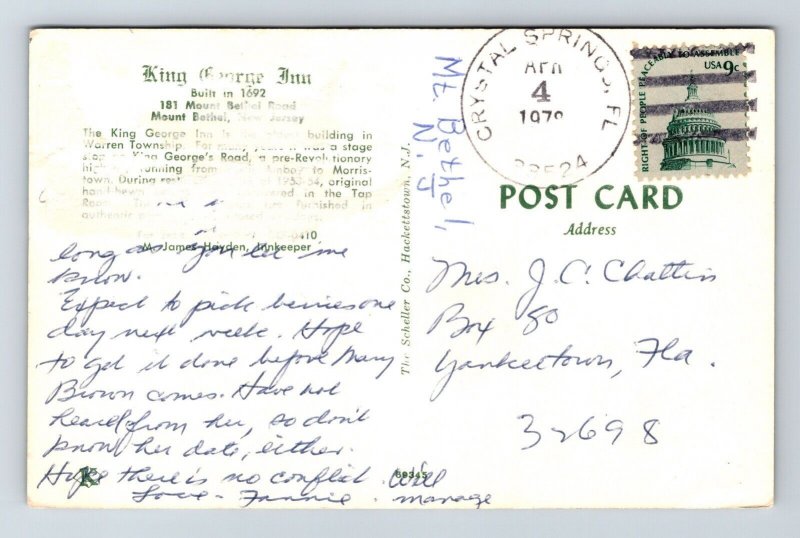 King George Inn
Built in 1692
181 Mount Bethel Road
Mount Bethel, New Jersey
The King George Inn is the oldest building in
Warren Township. For many years it was a stage
stop on King George's Road, a pre-Revolutionary
running from Amboy to Morris-
town. During of 1953-54, original
in the Tap
furnished in
authentic
0410
M. James Hayden, Innkeeper
long as you let me
know.
Expect to pick berries one
day next week. Hope
to get it done before Mary
Brown comes. Have not
heard from her, so don't
know her date, either.
Hope there is no conflict. Will
Love - Fannie. manage
K
Mt. Bethel,
N.J
The Scheller Co., Hackettstown, N.J.
69345
CRYSTAL SPRINGS, FL
APR
4
197
33524
RIGHT OF PEOPLE PEACEABLY TO ASSEMBLE
USA 9c
POST CARD
Address
Mrs. J. C. Chattin
Box 80
Yankeetown, Fla.
32698